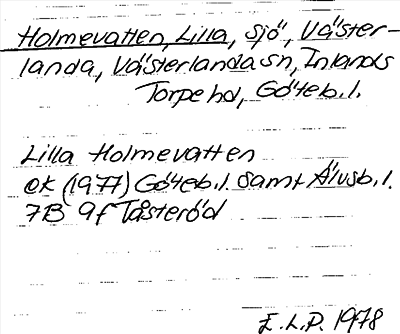 Holmevatten, Lilla, Sjö, Väster-
landa, Västerlanda sn, Inlands
Torpe hd, Göteb.l.
Lilla Holmevatten
ek (1977) Göteb.l. samt Älvsb.l.
7B 9f Tåsteröd
E.L.P. 1978